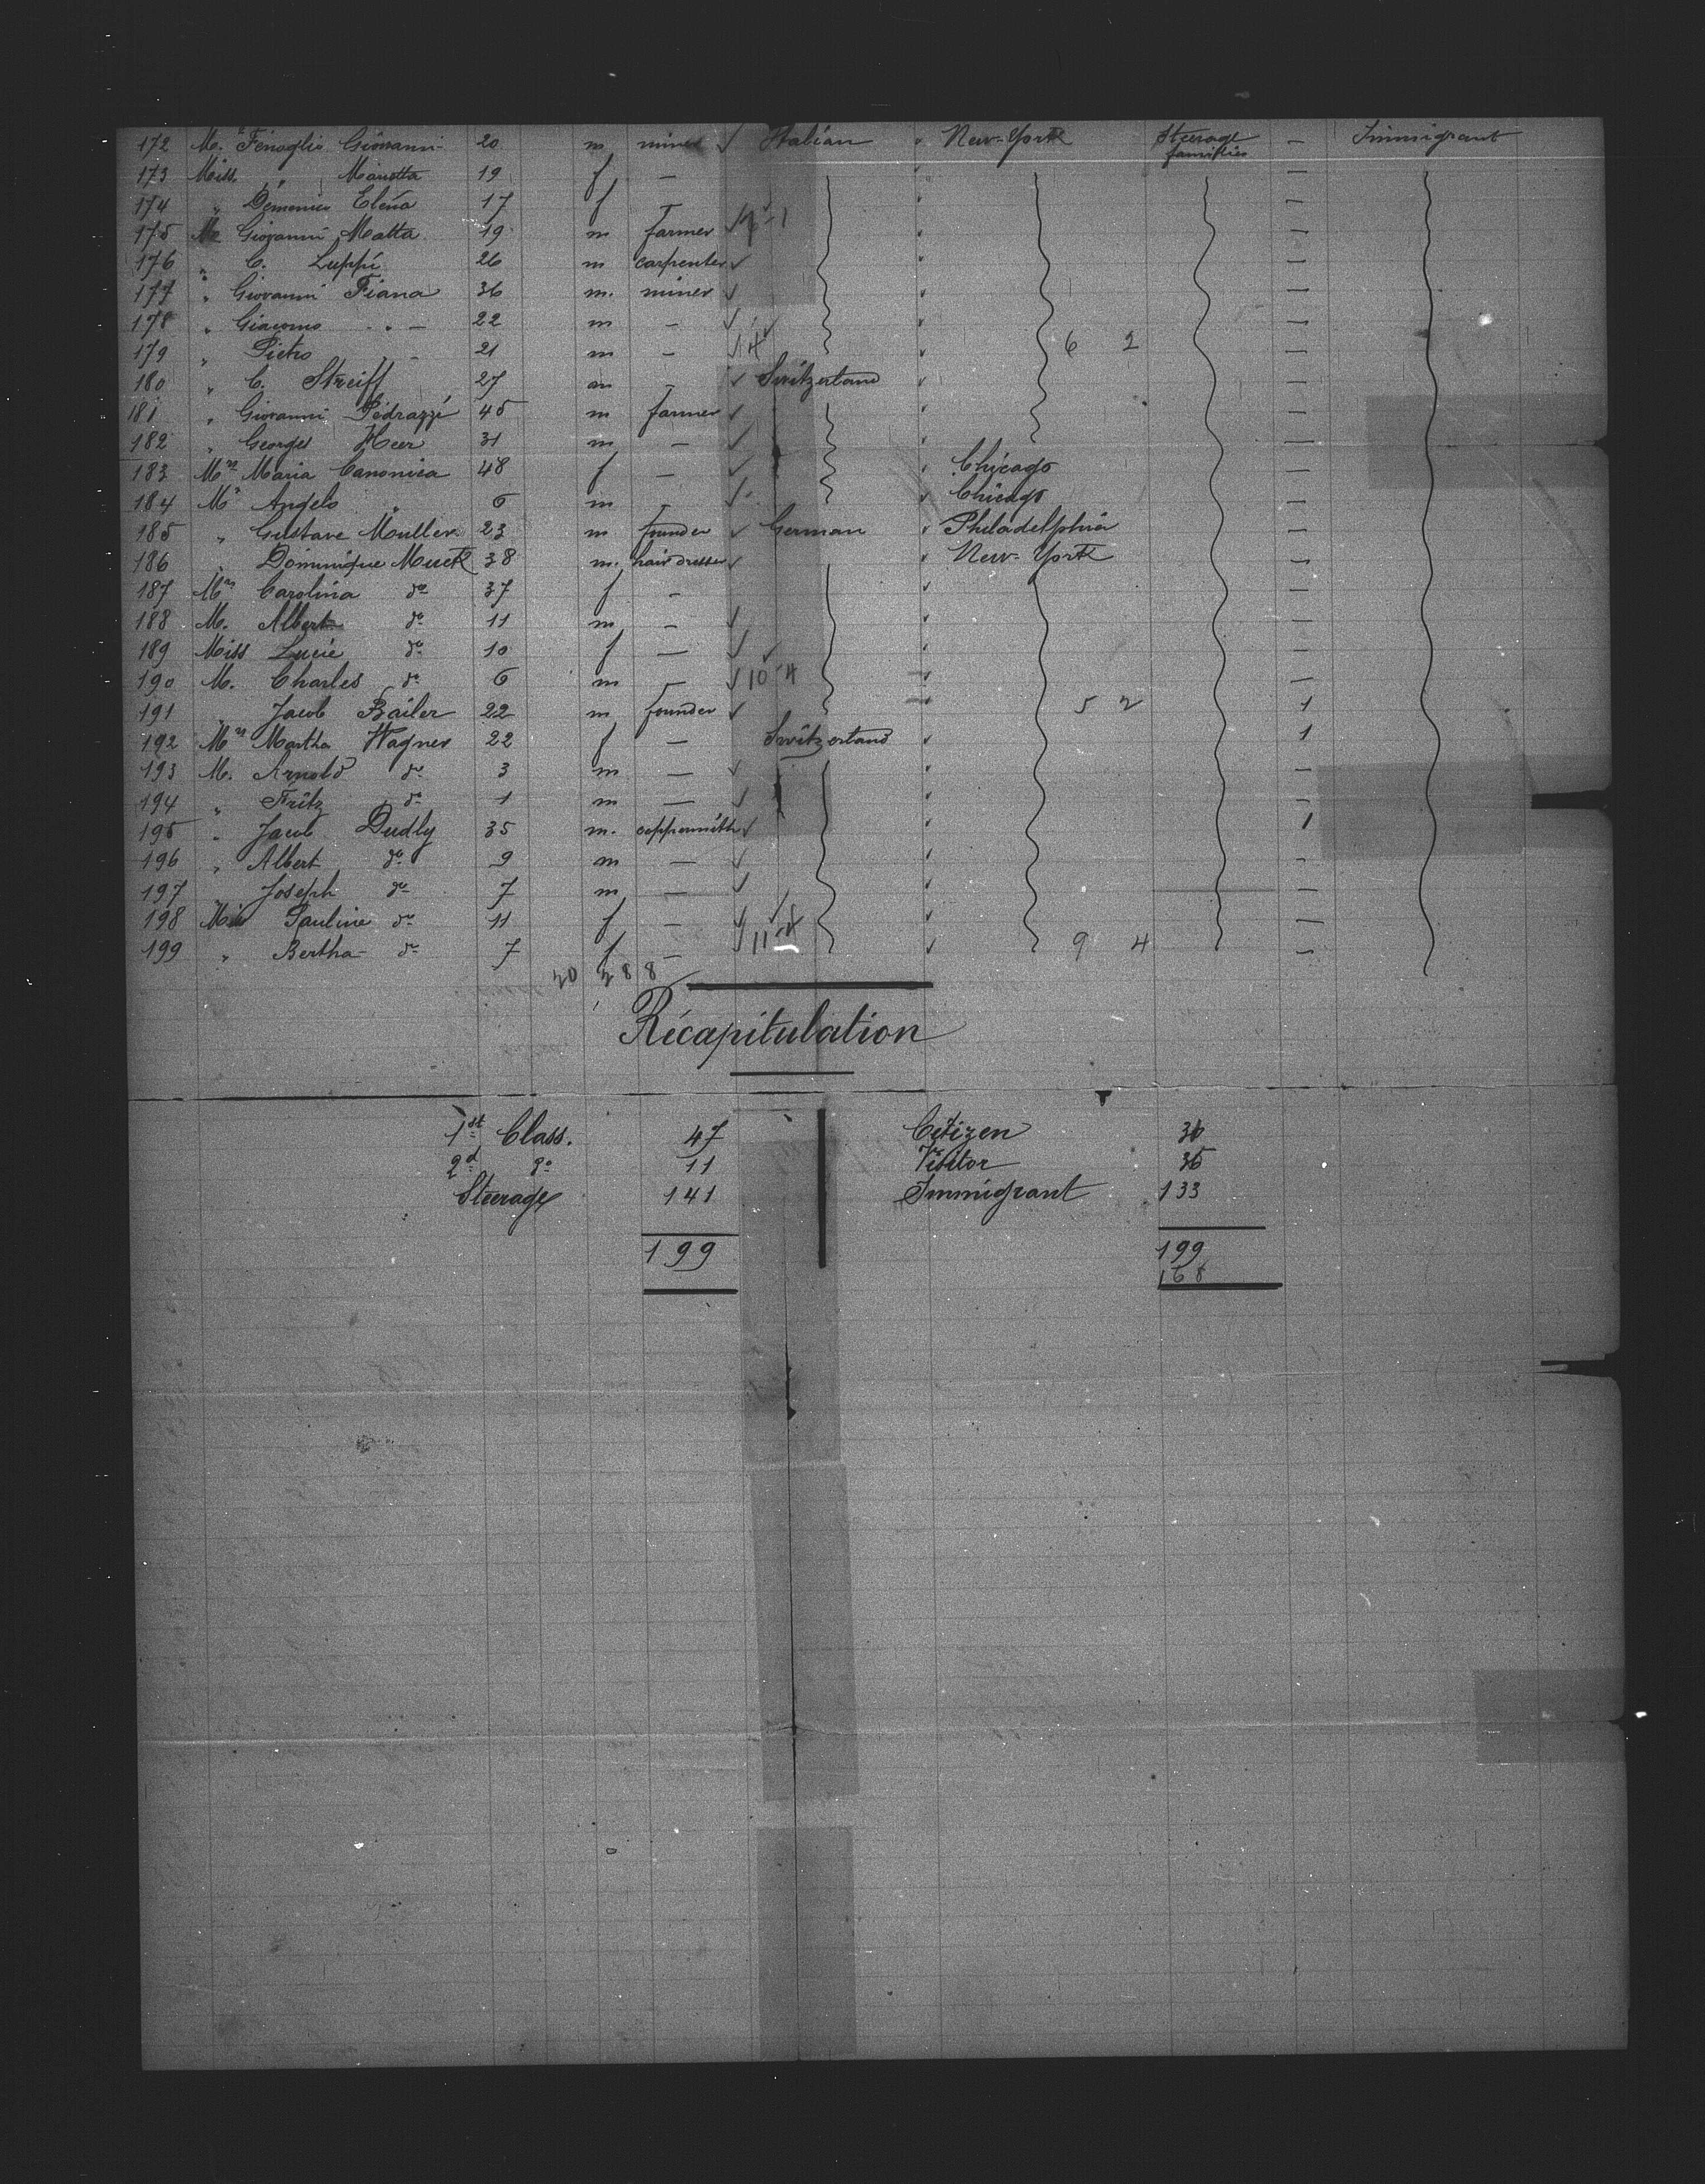 172 M.r Fenoglio Giovanni 20 m miner ✓ Italian New-York Steerage families — Immigrant
173 Miss " Mariotta 19 f — —
174 " Domenica Elena 17 f — —
175 M.r Giovanni Matta 19 m farmer —
176 " C. Luppi 26 m carpenter ✓ —
177 " Giovanni Fiana 36 m. miner ✓ —
178 " Giacomo " — 22 m — ✓ —
179 " Pietro — 21 m — ✓ 6 2 —
180 " C. Streiff 27 m — ✓ Switzerland —
181 " Giovanni Pedrazzi 45 m farmer ✓ —
182 " Georges Heer 31 m — ✓ —
183 M.me Maria Canonica 48 f — ✓ Chicago —
184 M.r Angelo " 6 m — ✓ Chicago —
185 " Gustave Muller 23 m founder ✓ German Philadelphia —
186 " Dominique Muck 38 m. hair dresser ✓ New-York —
187 M.me Carolina do 37 f — —
188 M. Albert do 11 m — ✓ —
189 Miss Lucie do 10 f — ✓ —
190 M. Charles do 6 m — ✓ 10 4 —
191 " Jacob Bailer 22 m founder ✓ 5 2 1
192 M.me Martha Wagner 22 f — Switzerland 1
193 M. Arnold do 3 m — ✓ —
194 " Fritz do 1 m — ✓ —
195 " Jacob Dudly 35 m. coppersmith ✓ 1
196 " Albert do 9 m — ✓ —
197 " Joseph do 7 m — ✓ —
198 Miss Pauline do 11 f — ✓ —
199 " Bertha do 7 f — ✓ 11 9 4 —
20 288
Récapitulation
1st Class. 47 Citizen
2d do 11 Visitor
Steerage 141 Immigrant 133
199 199
168